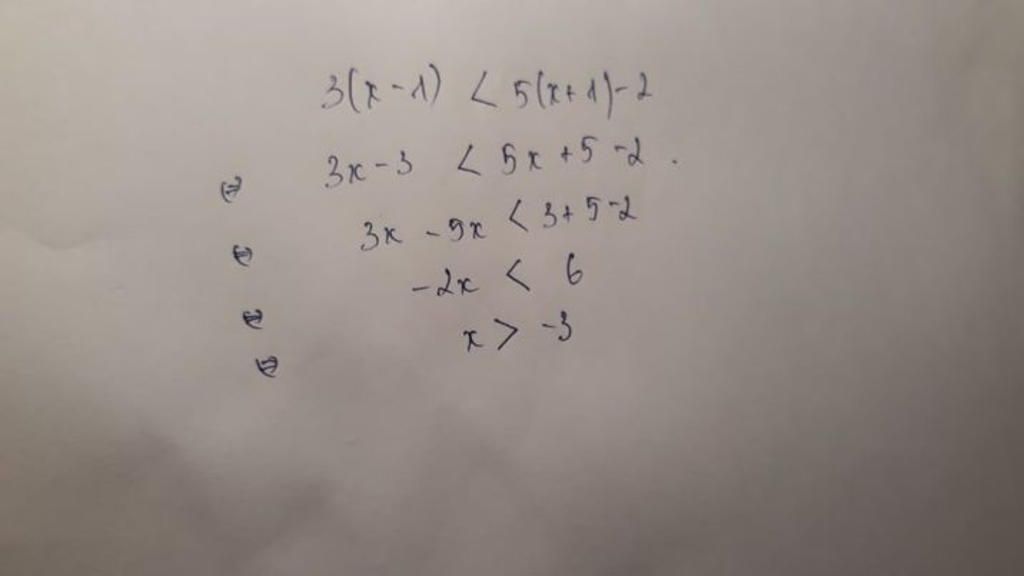 3(x-1) < 5(x+1)-2
⇔ 3x-3 < 5x+5-2.
⇔ 3x-5x < 3+5-2
⇔ -2x < 6
⇔ x > -3